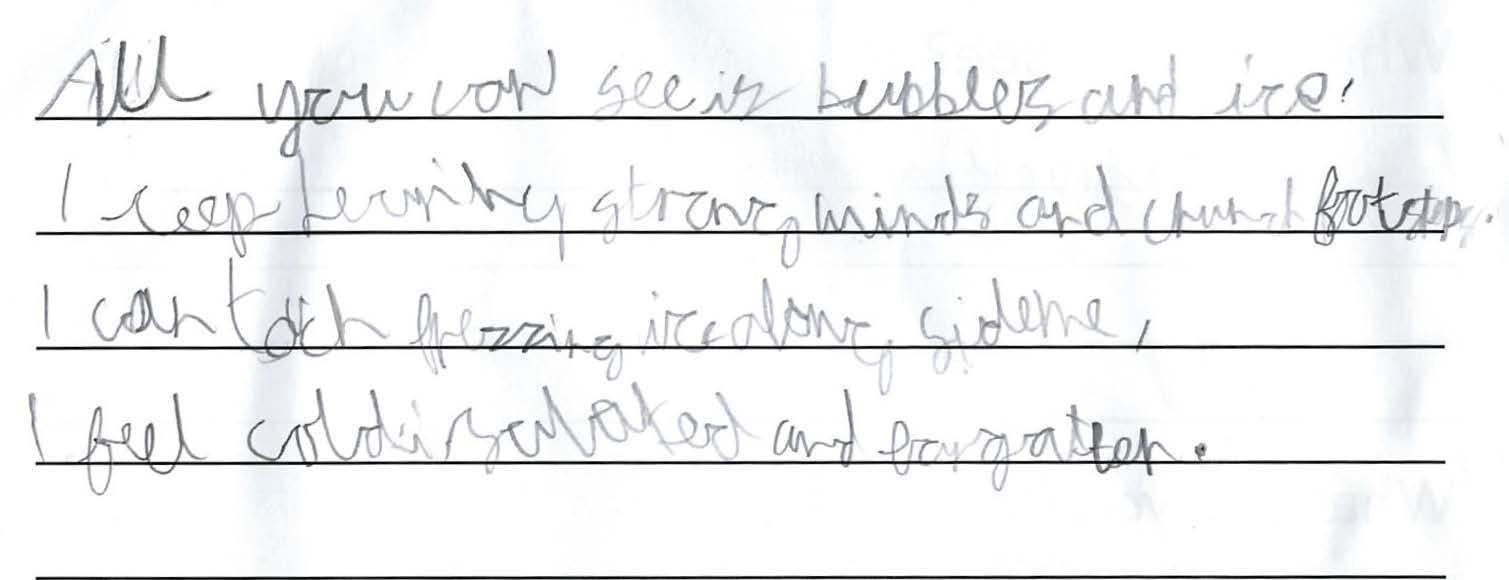 All you can see is bubbles and ice!
I keep hearing strong winds and crunch footsteps.
I can toch frezzing ice along side me,
I feel cold isulated and forgotten.